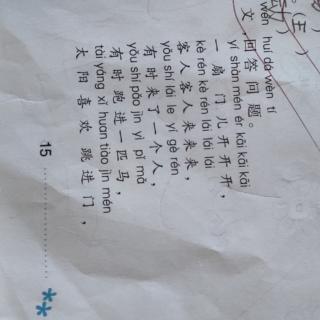 wén huí dá wèn tí
文，回答问题。
yí shàn mén ér kāi kāi kāi
一扇门儿开开开，
kè rén kè rén lái lái lái
客人客人来来来，
yǒu shí lái le yí gè rén
有时来了一个人，
yǒu shí pǎo jìn yì pǐ mǎ
有时跑进一匹马，
tài yáng xǐ huan tiào jìn mén
太阳喜欢跳进门，
15